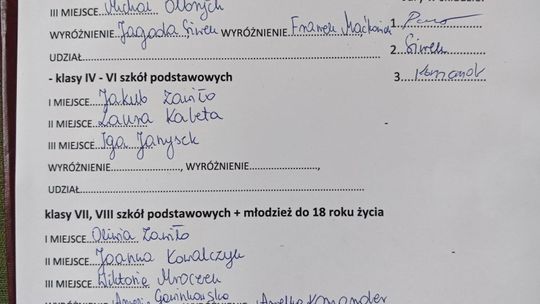 III MIEJSCE Michał Olbrych
WYRÓŻNIENIE Jagoda Siwek WYRÓŻNIENIE Franek Maćkowiak
1.
UDZIAŁ
2. Siwek
- klasy IV - VI szkół podstawowych
3. Komandor
I MIEJSCE Jakub Zawiło
II MIEJSCE Laura Kaleta
III MIEJSCE Iga Janysek
WYRÓŻNIENIE, WYRÓŻNIENIE,
UDZIAŁ
klasy VII, VIII szkół podstawowych + młodzież do 18 roku życia
I MIEJSCE Oliwia Zawiło
II MIEJSCE Joanna Kowalczyk
III MIEJSCE Wiktoria Mroczek
Komander